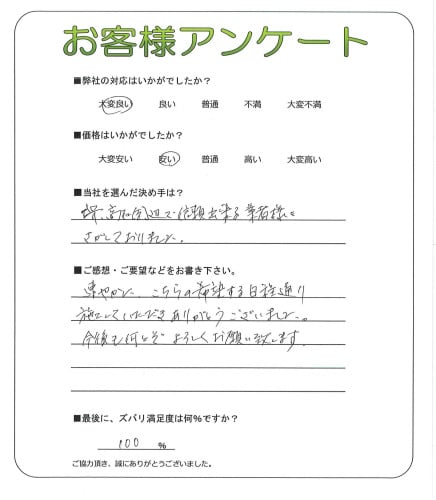 お客様アンケート
■弊社の対応はいかがでしたか？
大変良い 良い 普通 不満 大変不満
■価格はいかがでしたか？
大変安い 安い 普通 高い 大変高い
■当社を選んだ決め手は？
周辺で信頼出来る業者様を
さがしておりました。
■ご感想・ご要望などをお書き下さい。
速やかに、こちらの希望する日程通り
施工していただきありがとうございました。
今後も何とぞよろしくお願い致します
■最後に、ズバリ満足度は何％ですか？
100 %
ご協力頂き、誠にありがとうございました。